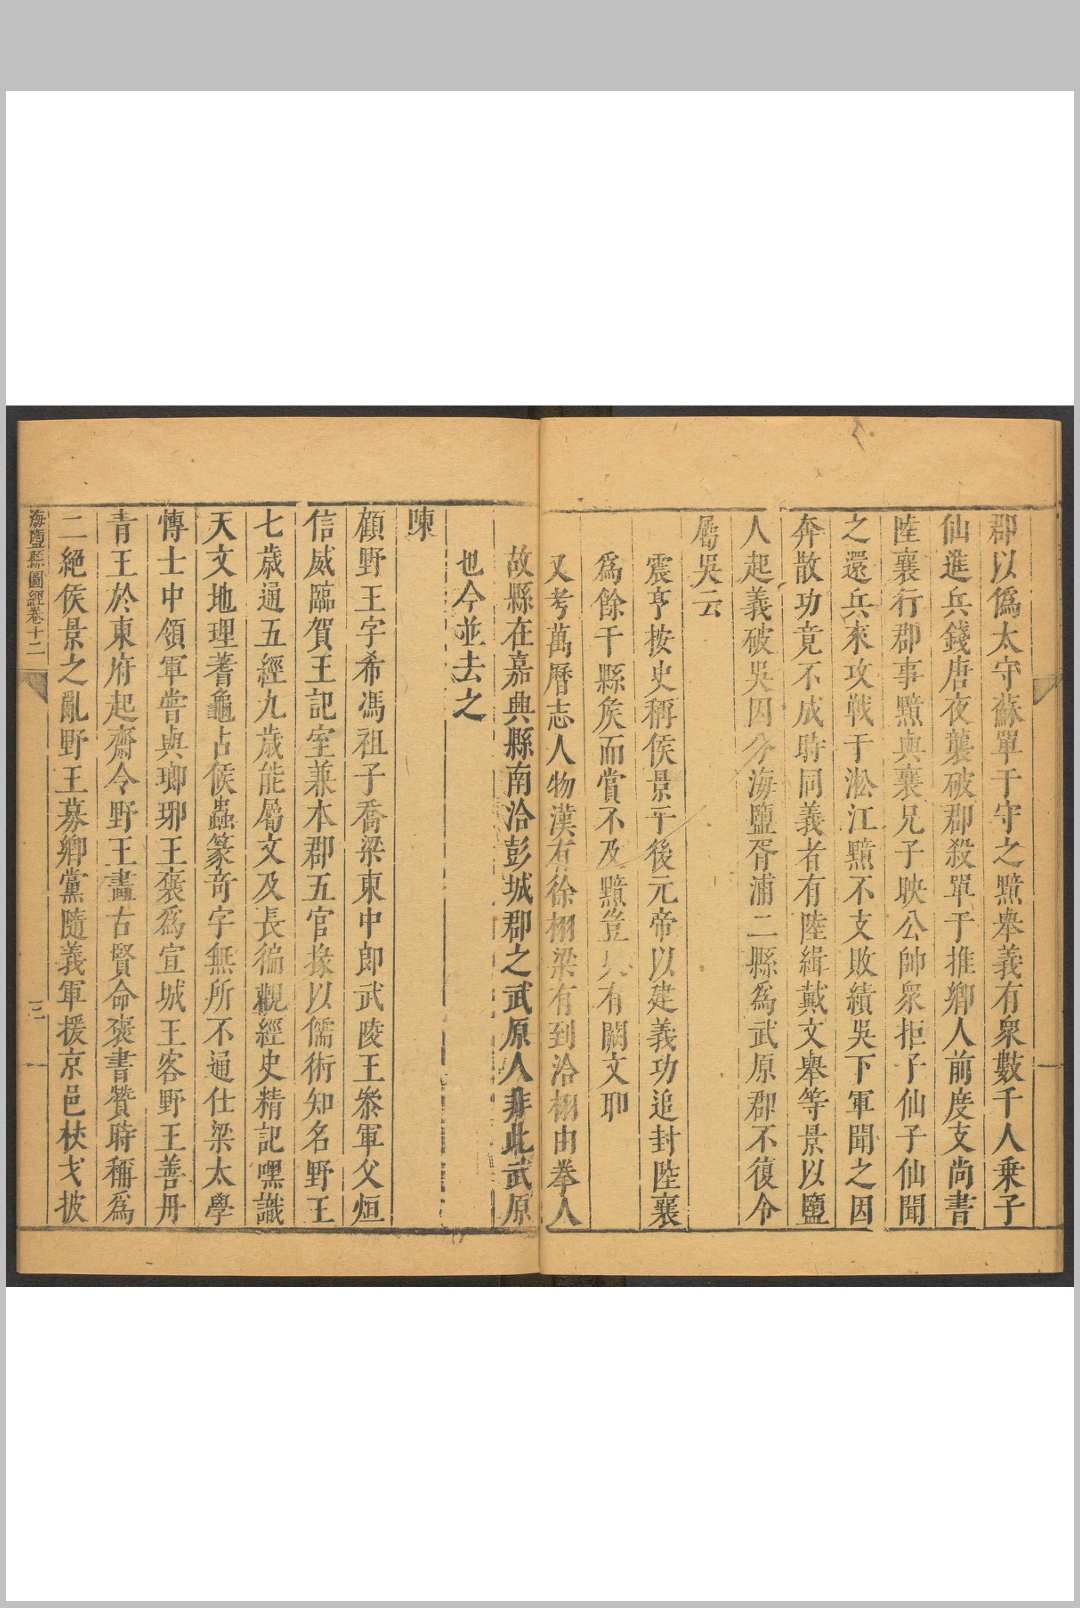 郡以僞太守蘇單于守之黯舉義有衆數千人乗子
仙進兵錢唐夜襲破郡殺單于推鄉人前度支尚書
陸襄行郡事黯與襄兄子映公帥衆拒子仙子仙聞
之還兵來攻戰于淞江黯不支敗績吳下軍聞之因
奔散功竟不成時同義者有陸緝戴文舉等景以鹽
人起義破吳因分海鹽胥浦二縣爲武原郡不復令
屬吳云
震亨按史稱侯景平後元帝以建義功追封陸襄
爲餘干縣矦而賞不及黯豈史有闕文耶
又考萬曆志人物漢有徐栩梁有到洽栩由拳人
故縣在嘉興縣南洽彭城郡之武原人非此武原
也今並去之
陳
顧野王字希馮祖子喬梁東中郎武陵王叅軍父烜
信威臨賀王記室兼本郡五官掾以儒術知名野王
七歲通五經九歲能屬文及長徧觀經史精記嘿識
天文地理蓍龜占候蟲篆奇字無所不通仕梁太學
博士中領軍嘗與瑯琊王褒爲宣城王客野王善丹
青王於東府起齋令野王畫古賢命褒書贊時稱爲
二絕侯景之亂野王募鄉黨隨義軍援京邑杖戈披
海鹽縣圖經卷十二
三